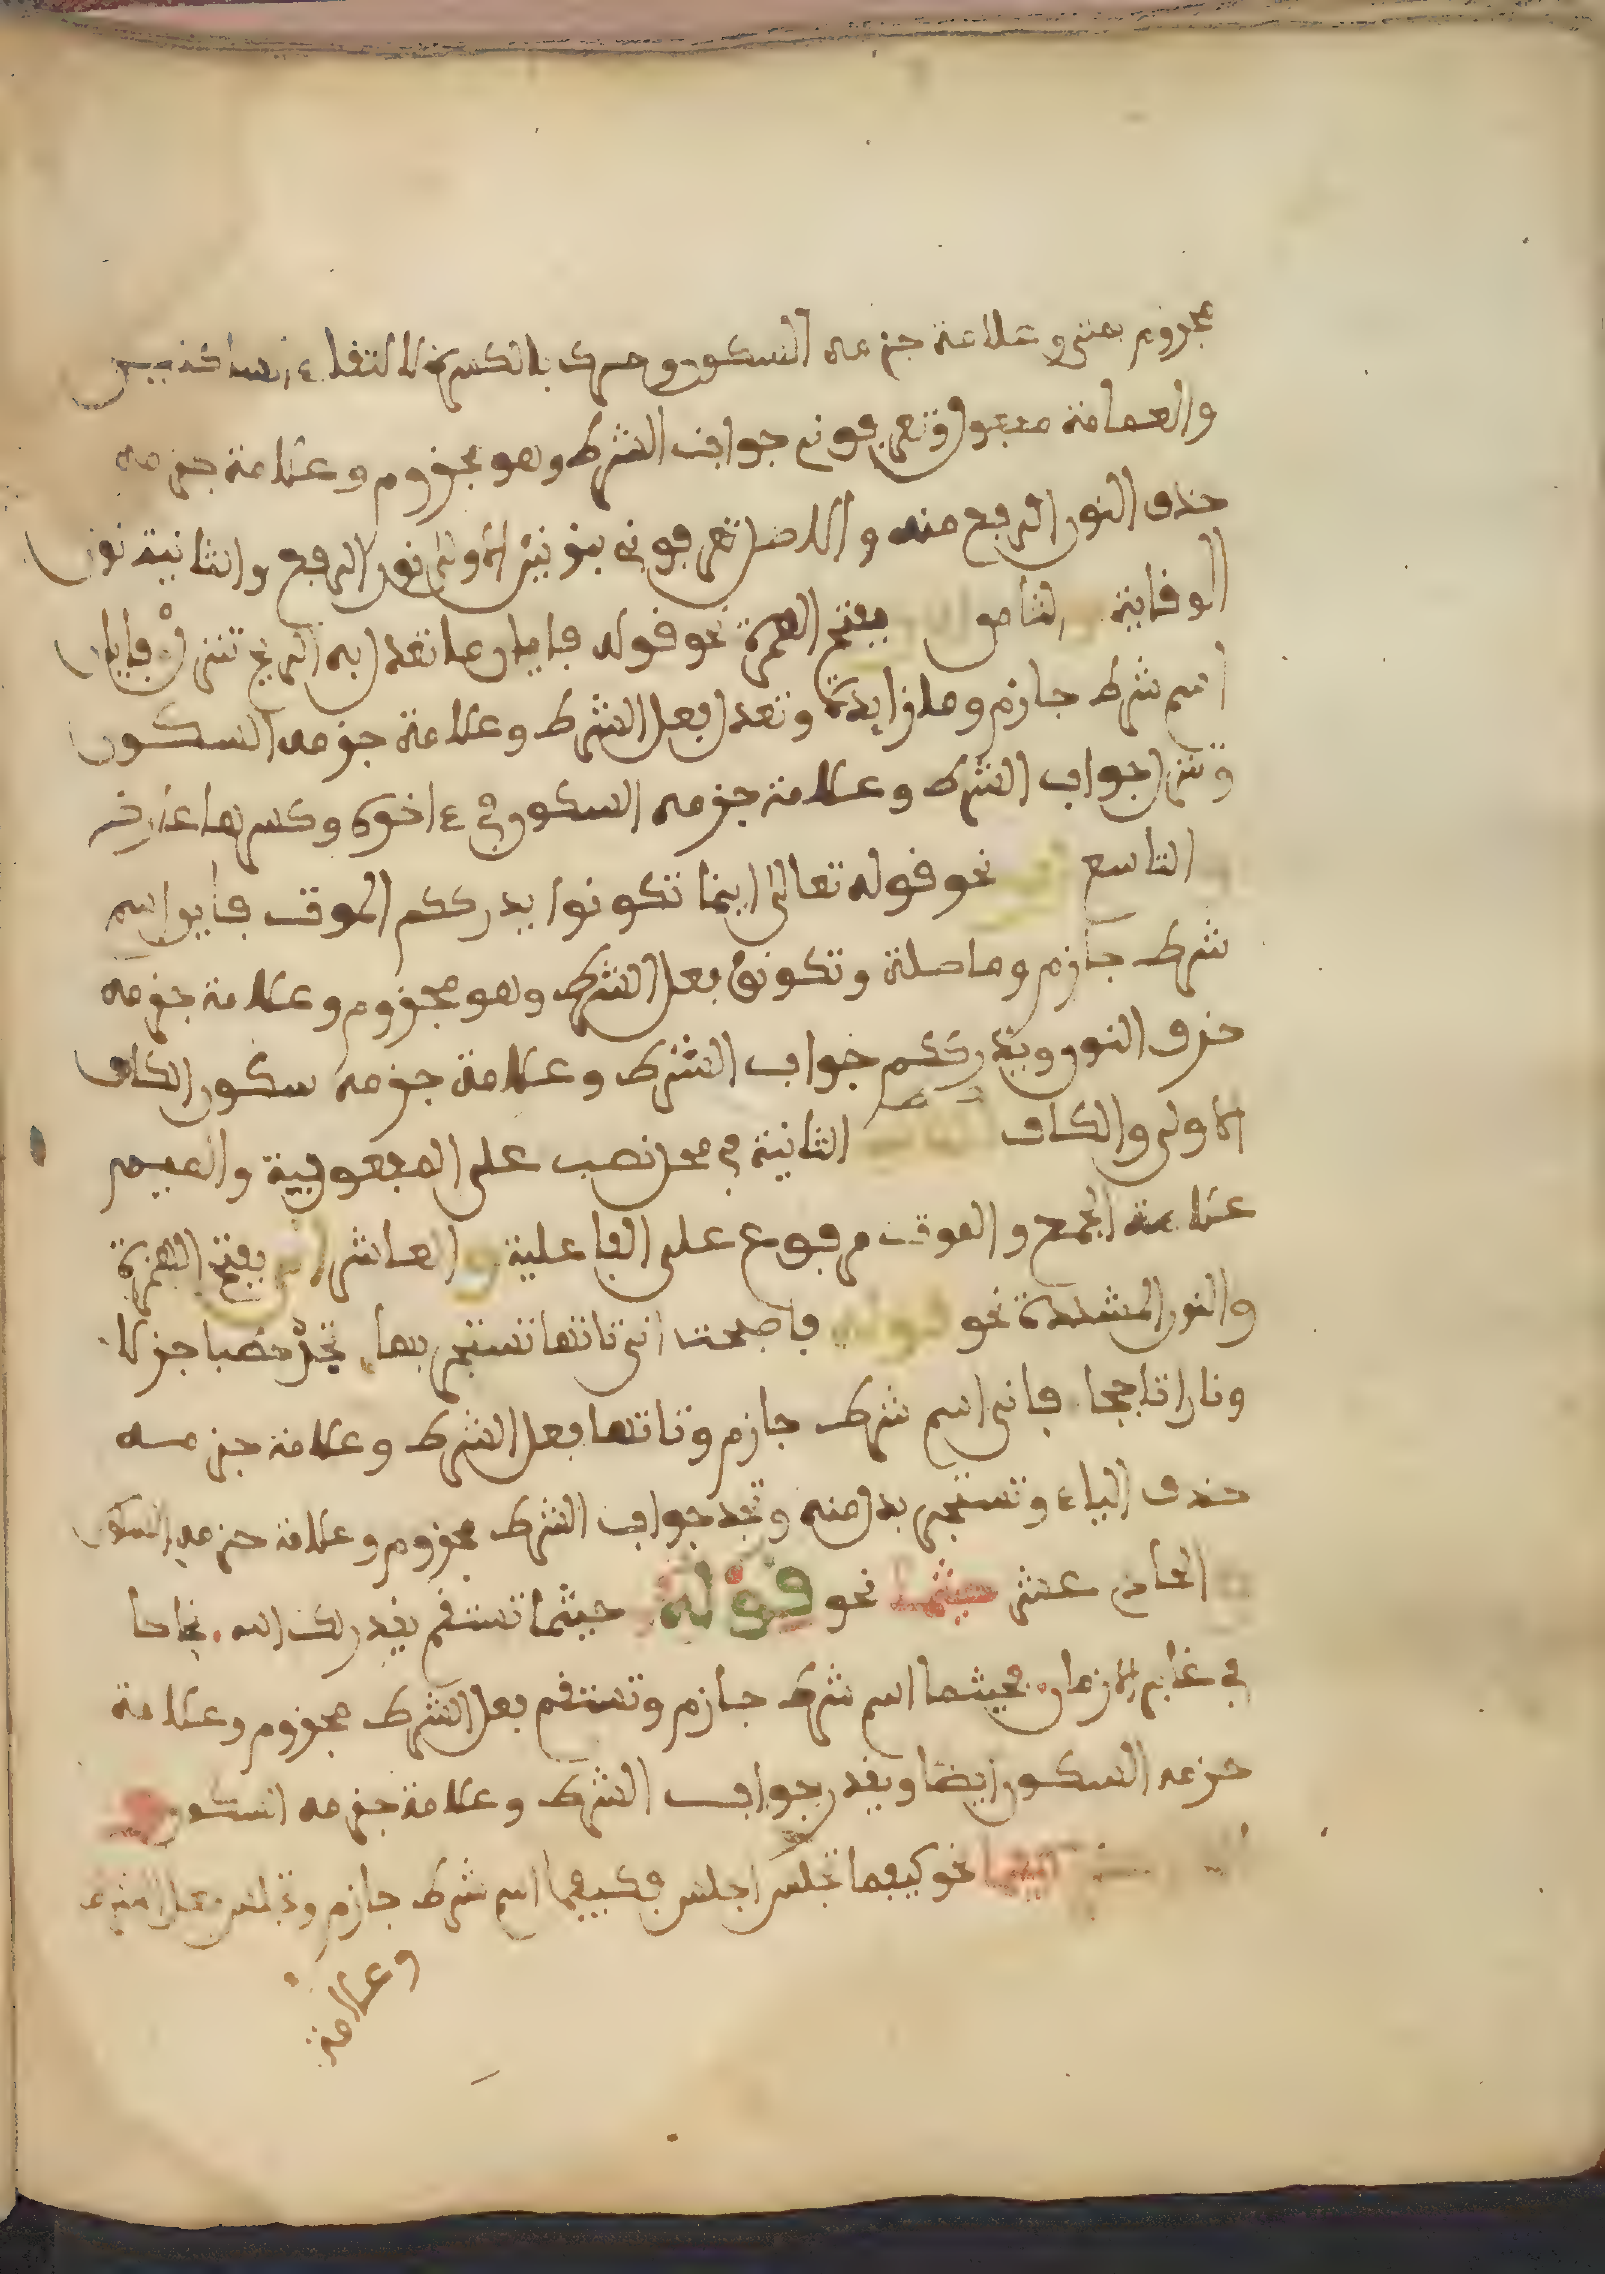 مجزوم بمتى وعلامة جزمه السكون وحرك بالكسرة لالتقاء الساكنين
والعمامة مفعول وتعرفوني جواب الشرط وهو مجزوم وعلامة جزمه
حذف النون الرفع منه والاصل تعرفونني بنونين الاولى نون الرفع والثانية نون
الوقاية والثامن ايان بفتح الهمزة نحو قوله فايان ما تعدل به الريح تنزل فايان
اسم شرط جازم وما زايدة وتعدل فعل الشرط وعلامة جزمه السكون
وتنزل جواب الشرط وعلامة جزمه السكون في ءاخره وكسرها عارض
التاسع اين نحو قوله تعالى اينما تكونوا يدرككم الموت فاين اسم
شرط جازم وما صلة وتكونوا فعل الشرط وهو مجزوم وعلامة جزمه
حذف النون ويدرككم جواب الشرط وعلامة جزمه سكون الكاف
الاولى والكاف الثانية في محل نصب على المفعولية والميم
علامة الجمع والموت مرفوع على الفاعلية والعاشر انى بفتح الهمزة
والنون المشددة نحو قوله فاصبحت انى تاتها تستجر بها تجد حطبا جزلا
ونارا تاججا فانى اسم شرط جازم وتاتها فعل الشرط وعلامة جزمه
حذف الياء وتستجر بدل منه وتجد جواب الشرط مجزوم وعلامة جزمه السكون
الحادي عشر حيثما نحو قوله حيثما تستقم يقدر لك الله نجاحا
في غابر الازمان فحيثما اسم شرط جازم وتستقم فعل الشرط مجزوم وعلامة
جزمه السكون ايضا ويقدر جواب الشرط وعلامة جزمه السكون و
كيفما نحو كيفما تجلس اجلس فكيفما اسم شرط جازم وتجلس فعل الشرط
وعلامة